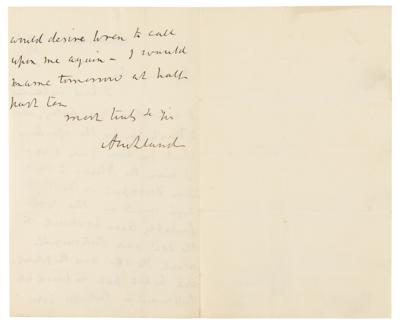 would desire Wren to call
upon me again - I would
name tomorrow at half
past ten
most truly
Auckland